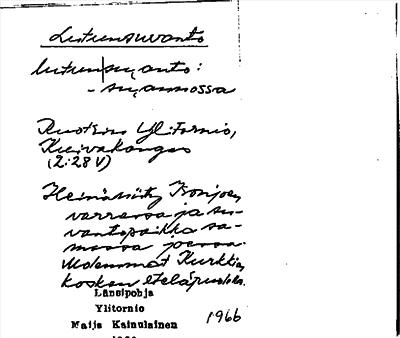 Lutunsuvanto
lutunsu̯anto:
- su̯annossa
Ruotsin Ylitornio,
Kuivakangas
(2:28 V)
Heinäniitty Isonjoen
varressa ja su-
vantopaikka sa-
massa joessa.
Molemmat Kurkkin
kosken eteläpuolella.
Länsipohja
Ylitornio
Maija Kainulainen
1966